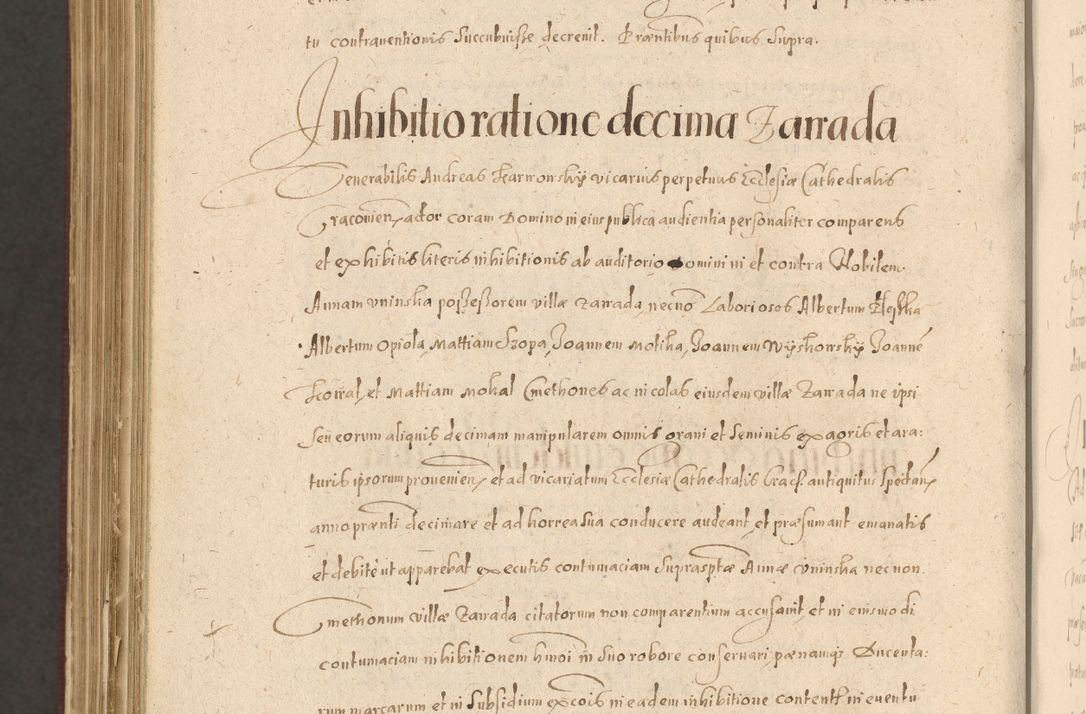 tu contraventionis Succubuisse decrevit. Præntibus quibus Supra.
Inhibitio ratione decima Zarrada
Venerabilis Andreas Karwowskÿ vicarius perpetuus Ecclesiæ Cathedralis
Cracovien, actor coram Domino in eius publica audientia personaliter comparens
et exhibitis literis inhibitionis ab auditorio Domini in et contra Nobilem
Annam Uninska possessorem villæ Zarrada, necnō Laboriosos Albertum
Albertum Opiola, Mattiam Szopa, Joannem Molika, Joannem Wÿskowskÿ Joannē
et Mattiam Mokal Cmethones ac incolas eiusdem villæ Zarrada ne ipsi
Seu eorum aliquis decimam manipularem omnis grani et Seminis ex agris et ara:
turis ipsorum provenien, et ad vicariatum Ecclesiæ Cathedralis Crac. antiquitus Spectan,
anno prænti decimare et ad horrea Sua conducere audeant, et præsumant emanatis
et debite ut apparebat executis contumaciam Suprasptæ Annæ Uninska nec non
Cmethonum villæ Zarrada citatorum non comparentium accusavit, et in eiusmodi
contumaciam inhibitionem hmoi in Suo robore conservari, pænamqz Ducenta:
rum marcarum et in Subsidium excois in eadem inhibitione content in eventu